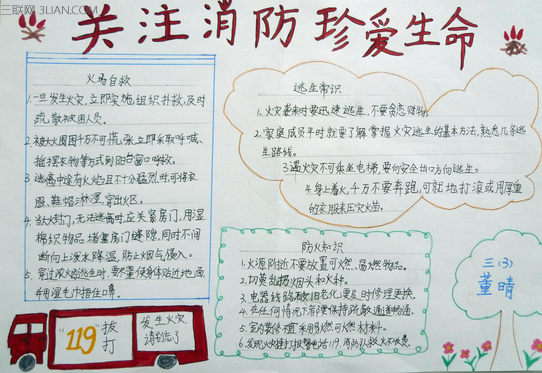 三联网 3LIAN.COM
关注消防珍爱生命
火场自救
1.一旦发生火灾,立即实施组织扑救,及时
疏散被困人员。
2.被火围困千万不可慌张,立即采取呼喊、
摇摆衣物等方式到阳台窗口呼救。
3.逃离中途有火焰且不十分猛烈时,可将衣
服、鞋帽淋湿,穿出火区。
4.大火封门,无法逃离时,应关紧房门,用湿
棉织物品堵塞房门缝隙,同时不间
断向上泼水降温,防止烟气侵入。
5.穿过浓烟逃生时,要尽量使身体贴近地面
并用湿毛巾捂住口鼻。
逃生常识
1.火灾袭来时要迅速逃生,不要贪恋财物。
2.家庭成员平时就要了解掌握火灾逃生的基本方法,熟悉几条逃
生路线。
3.遇火灾不可乘坐电梯,要向安全出口方向逃生。
4.身上着火,千万不要奔跑,可就地打滚或用厚重
的衣服来压灭火苗。
防火知识
1.火源附近不要放置可燃、易燃物品。
2.切莫乱扔烟头和火种。
3.电器线路破旧老化要及时修理更换。
4.在任何情况下都要保持疏散通道畅通。
5.室内装修不宜采用易燃可燃材料。
6.发现火灾速打报警电话119,消防队救火不收费。
三(3)
董晴
"119"
拔
打
发生火灾
请别忘了